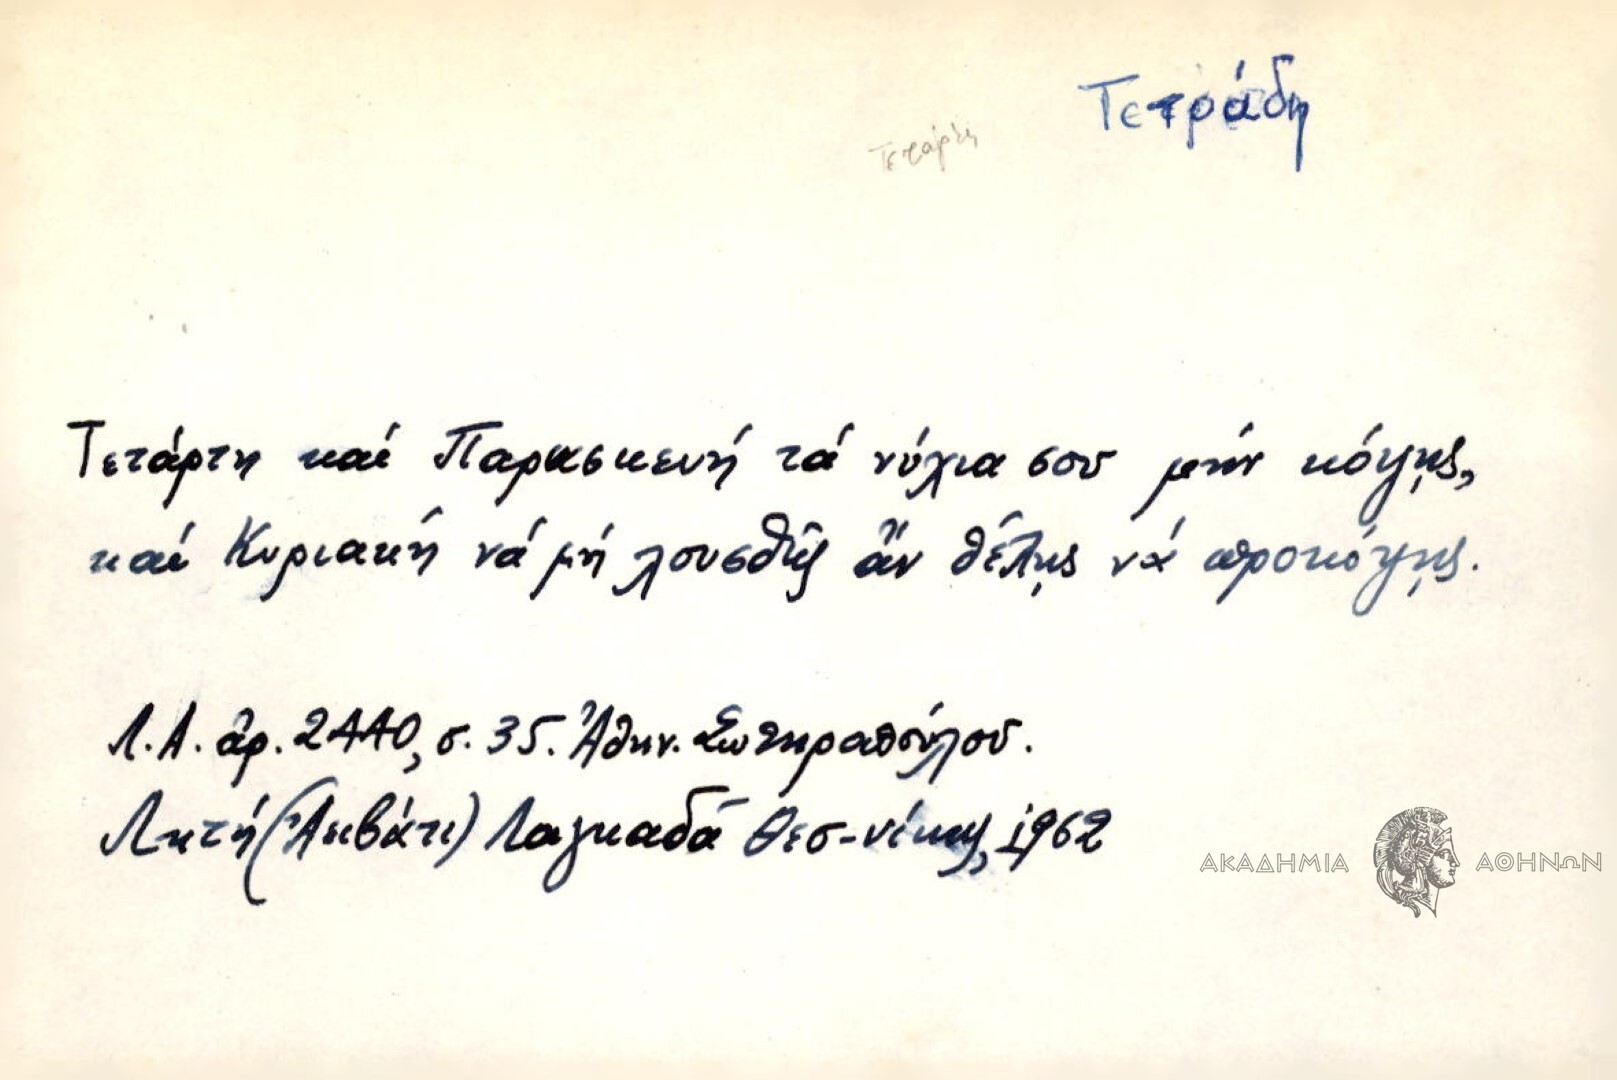 Τετράδη
Τετάρτη
Τετάρτη καί Παρασκευή τά νύχια σου μήν κόψῃς,
καί Κυριακή νά μή λουσθῇς ἄν θέλῃς νά προκόψῃς.
Λ.Α. ἀρ. 2440, σ. 35. Ἀθην. Σωτηροπούλου.
Λητή (Ἀϊβάτι) Λαγκαδᾶ Θεσ-νίκης, 1962
ΑΚΑΔΗΜΙΑ ΑΘΗΝΩΝ